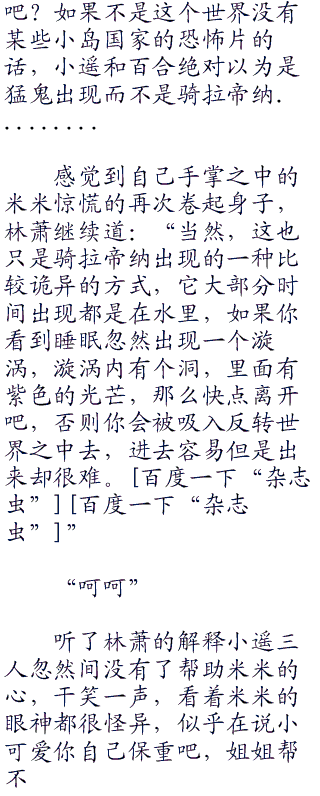 吧？如果不是这个世界没有
某些小岛国家的恐怖片的
话，小遥和百合绝对以为是
猛鬼出现而不是骑拉帝纳．
．．．．．．．．
感觉到自己手掌之中的
米米惊慌的再次卷起身子，
林萧继续道：“当然，这也
只是骑拉帝纳出现的一种比
较诡异的方式，它大部分时
间出现都是在水里，如果你
看到睡眠忽然出现一个漩
涡，漩涡内有个洞，里面有
紫色的光芒，那么快点离开
吧，否则你会被吸入反转世
界之中去，进去容易但是出
来却很难。[百度一下“杂志
虫”][百度一下“杂志
虫”]”
“呵呵”
听了林萧的解释小遥三
人忽然间没有了帮助米米的
心，干笑一声，看着米米的
眼神都很怪异，似乎在说小
可爱你自己保重吧，姐姐帮
不